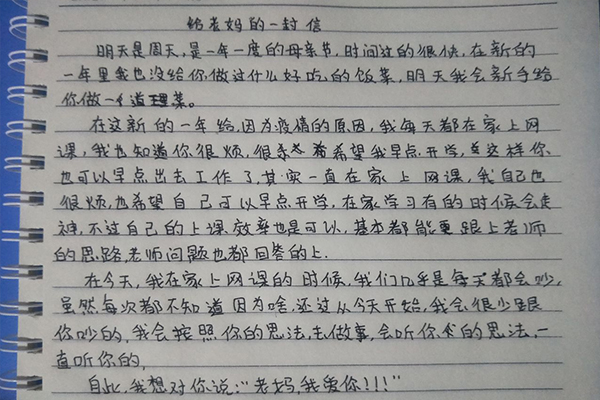 给老妈的一封信
明天是周天,是一年一度的母亲节,时间过的很快,在新的
一年里我也没给你做过什么好吃的饭菜,明天我会新手给
你做一个道理菜。
在这新的一年给,因为疫情的原因,我每天都在家上网
课,我也知道你很烦,很希望我早点开学,这样你
也可以早点出去工作了,其实一直在家上网课,我自己也
很烦,也希望自己可以早点开学,在家学习有的时候会走
神,不过自己的上课效率也是可以,基本都能更跟上老师
的思路,老师问题也都回答的上.
在今天,我在家上网课的时候,我们几乎是每天都会吵,
虽然每次都不知道因为啥,还过从今天开始,我会很少跟
你吵的,我会按照你的思法,去做事,会听你的思法,一
直听你的,
自此,我想对你说:“老妈,我爱你!!!”